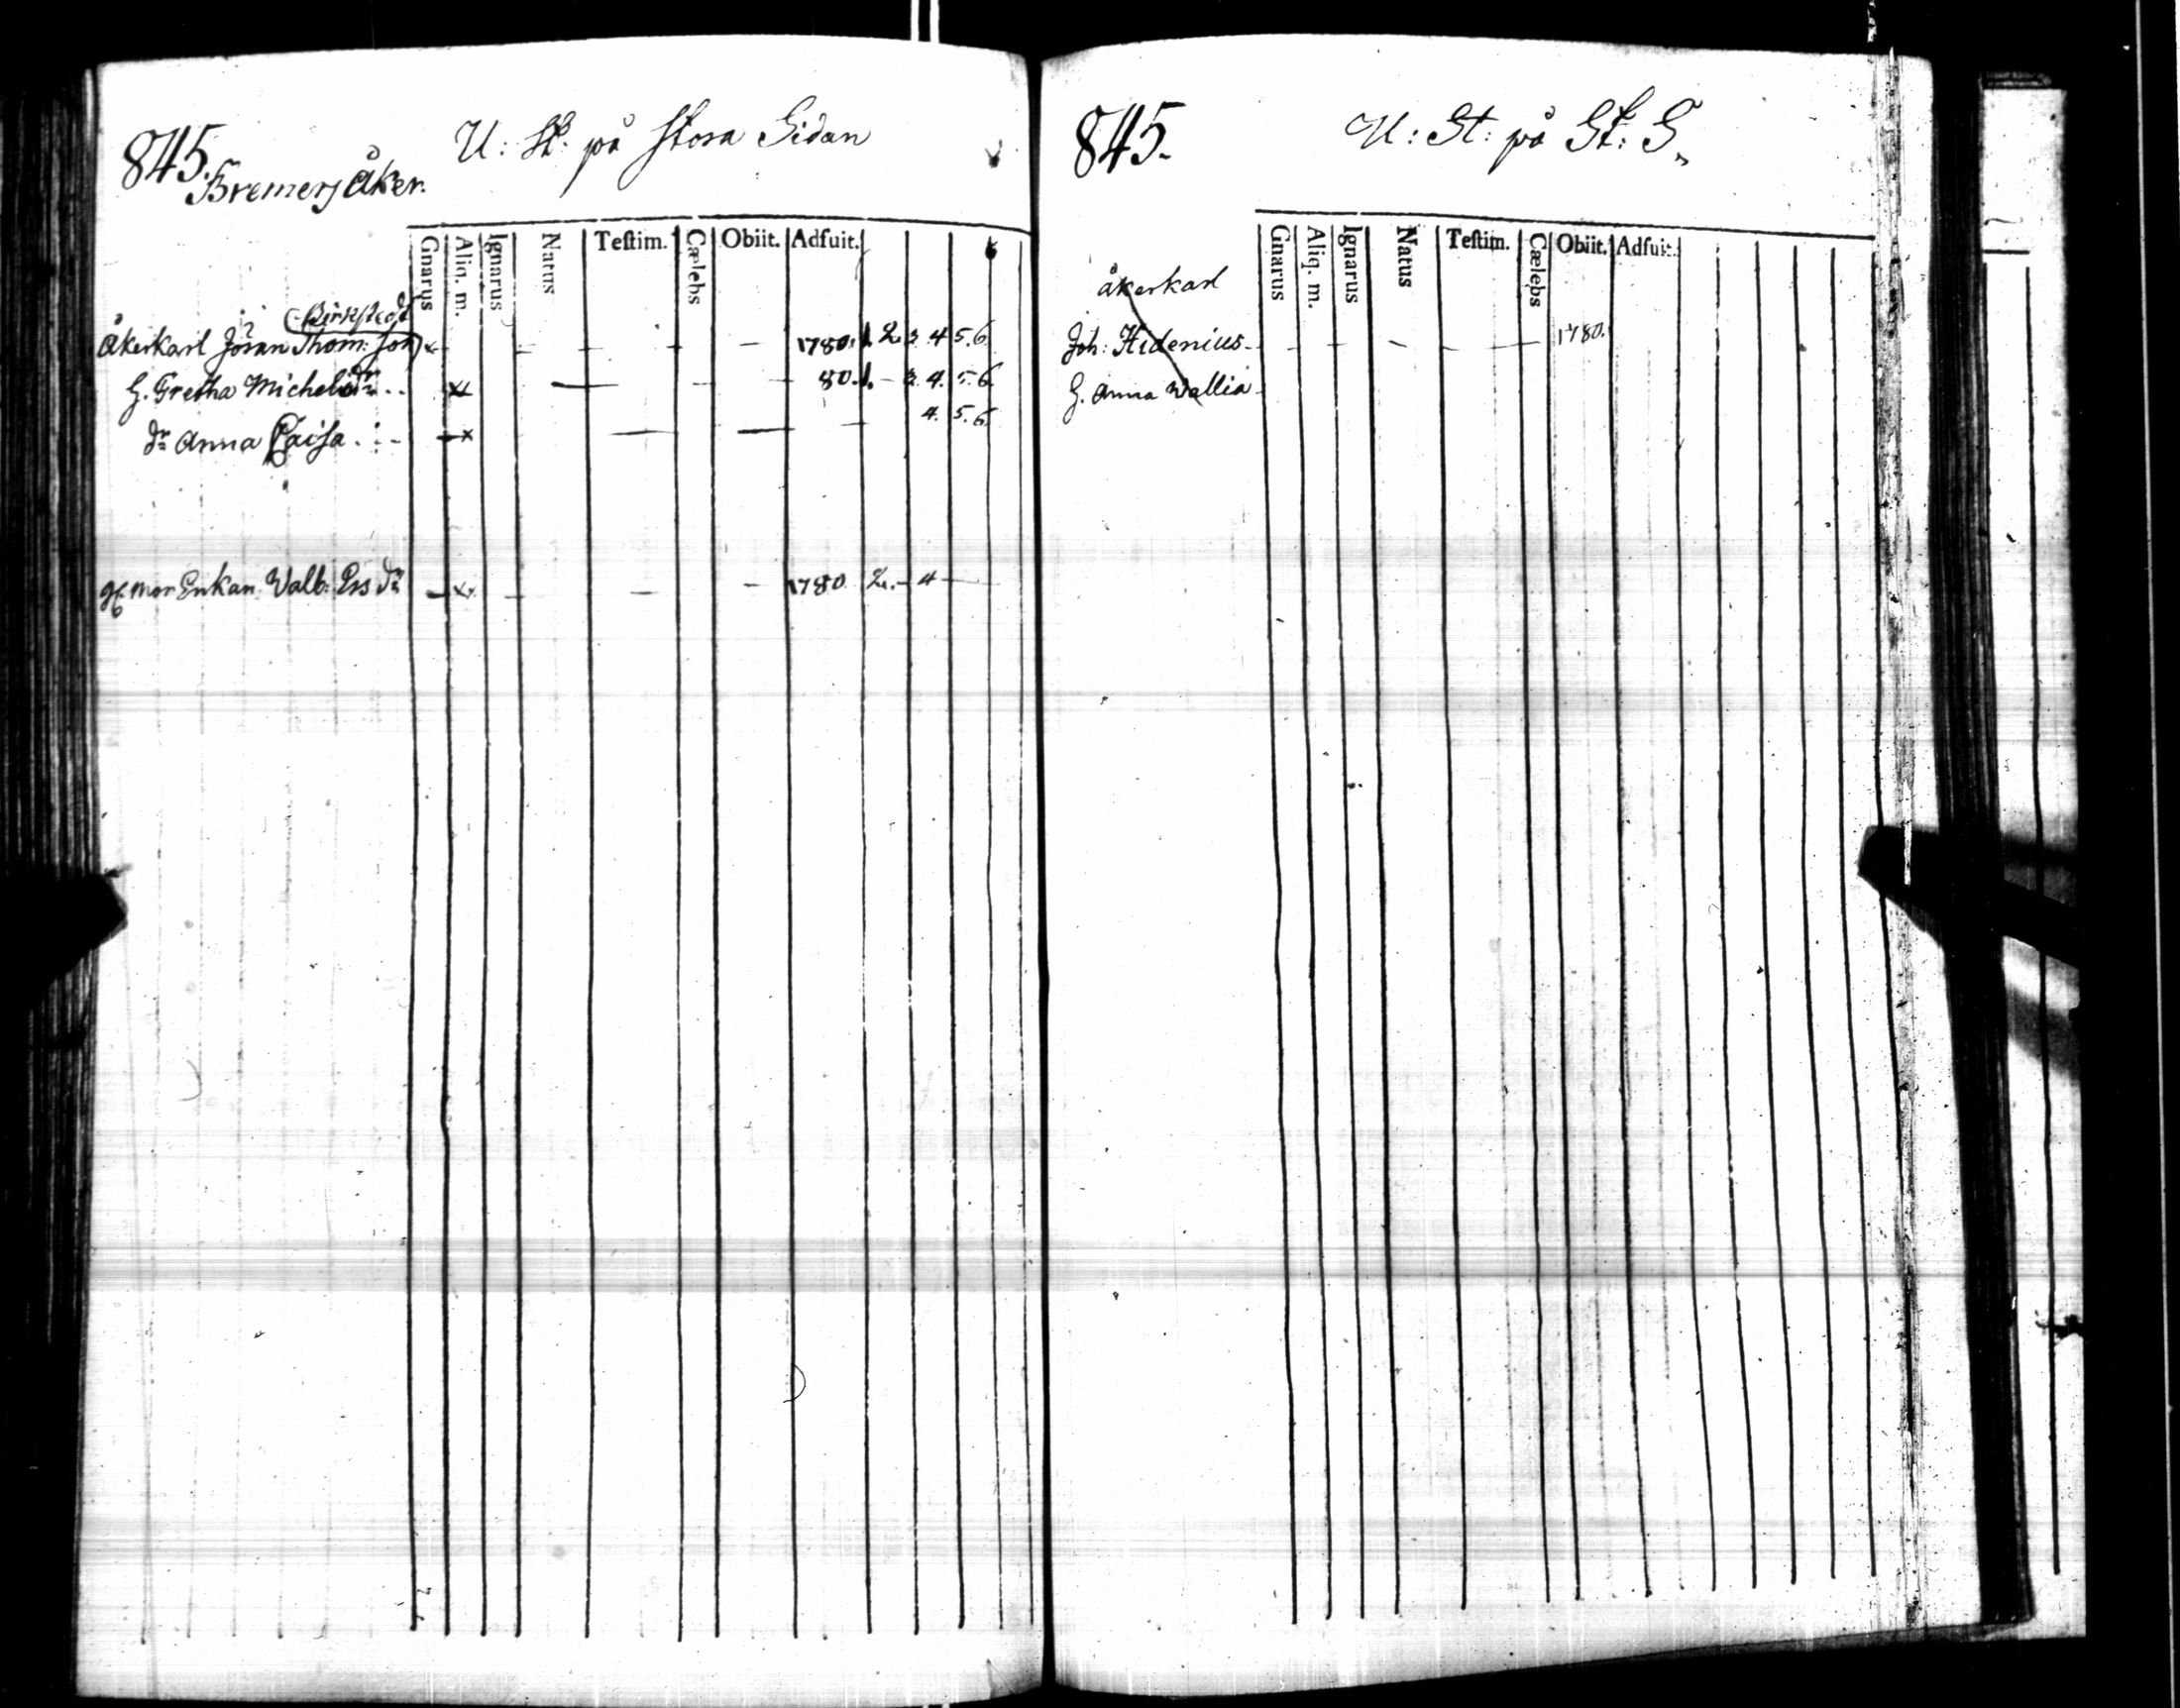 845. U: St: på Stora Sidan
Bremers åker.
Gnarus Aliq. m. Ignarus Natus Teſtim. Cælebs Obiit. Adfuit.
Birkstedt
Åkerkarl Jöran Thom: Son 1780. 1. 2. 3. 4. 5. 6.
G. Gretha Michelsdr 80. 1. - 3. 4. 5. 6.
4. 5. 6.
dr Anna Caisa
mor Enkan Valb: Ersdr 1780. 2. - 4
845. U: St: på St: S.
Gnarus Aliq. m. Ignarus Natus Teſtim. Cælebs Obiit. Adfuit.
åkerkarl
Joh: Hidenius 1780.
G. Anna Wallia